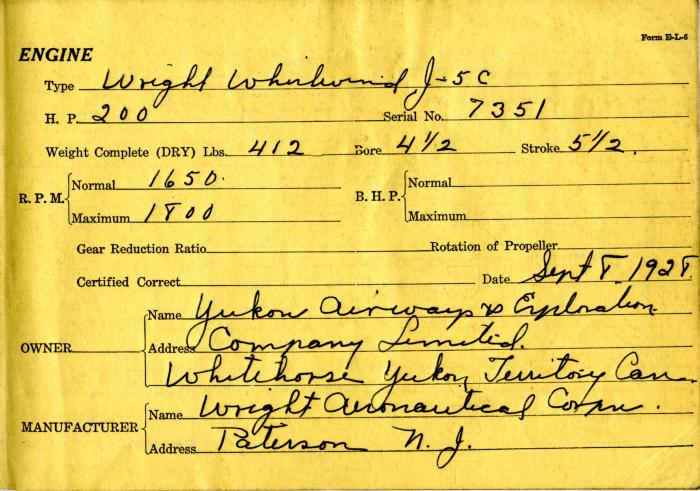 Form E-L-6
ENGINE
Type Wright Whirlwind J-5C
H. P. 200 Serial No. 7351
Weight Complete (DRY) Lbs. 412 Bore 4 1/2 Stroke 5 1/2.
R. P. M. Normal 1650. B. H. P. Normal
Maximum 1800 Maximum
Gear Reduction Ratio Rotation of Propeller
Certified Correct Date Sept 8. 1928.
OWNER Name Yukon Airways & Exploration
Address Company Limited.
Whitehorse Yukon Territory Can
MANUFACTURER Name Wright Aeronautical Corpn.
Address Paterson N. J.